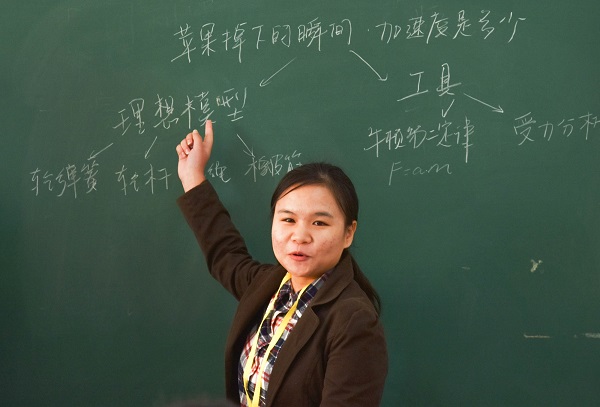 苹果掉下的瞬间·加速度是多少
理想模型
工具
牛顿第二定律
受力分析
F=a.m
轻弹簧 轻杆 绳